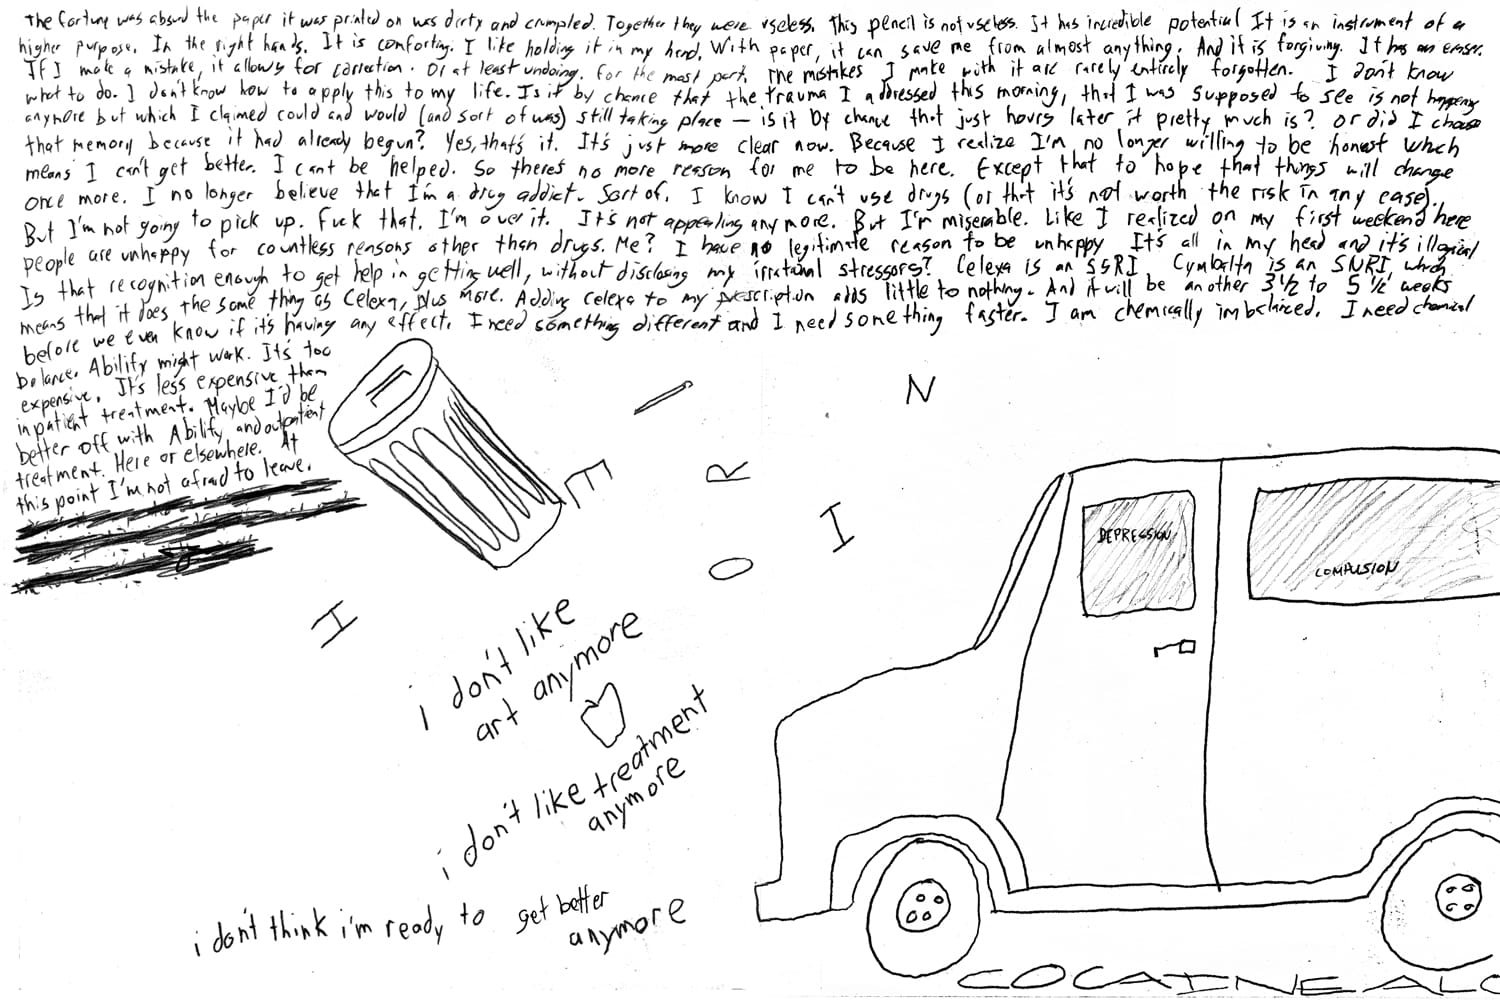 The fortune was absurd the paper it was printed on was dirty and crumpled. Together they were useless. This pencil is not useless. It has incredible potential It is an instrument of a
higher purpose. In the right hands. It is comforting. I like holding it in my hand. With paper, it can save me from almost anything. And it is forgiving. It has an eraser.
If I make a mistake, it allows for correction. Or at least undoing. For the most part. The mistakes I make with it are rarely entirely forgotten. I don't know
what to do. I don't know how to apply this to my life. Is it by chance that the trauma I addressed this morning, that I was supposed to see is not happening
anymore but which I claimed could and would (and sort of was) still taking place — is it by chance that just hours later it pretty much is? or did I choose
that memory because it had already begun? Yes, that's it. It's just more clear now. Because I realize I'm no longer willing to be honest which
means I can't get better. I cant be helped. So there's no more reason for me to be here. Except that to hope that things will change
once more. I no longer believe that I'm a drug addict. Sort of. I know I can't use drugs (or that it's not worth the risk in any case).
But I'm not going to pick up. Fuck that. I'm over it. It's not appealing any more. But I'm miserable. Like I realized on my first weekend here
people are unhappy for countless reasons other than drugs. Me? I have no legitimate reason to be unhappy It's all in my head and it's illogical
Is that recognition enough to get help in getting well, without disclosing my irrational stressors? Celexa is an SSRI. Cymbalta is an SNRI, which
means that it does the same thing as Celexa, plus more. Adding Celexa to my prescription adds little to nothing. And it will be another 3 1/2 to 5 1/2 weeks
before we even know if it's having any effect. I need something different and I need something faster. I am chemically imbalanced. I need chemical
balance. Ability might work. It's too
expensive. It's less expensive than
inpatient treatment. Maybe I'd be
better off with Ability and outpatient
treatment. Here or elsewhere. At
this point I'm not afraid to leave.
N
E
R
I
O
I
DEPRESSION
COMPULSION
i don't like
art anymore
i don't like treatment
anymore
i don't think i'm ready to get better
anymore
COCAINE ALC